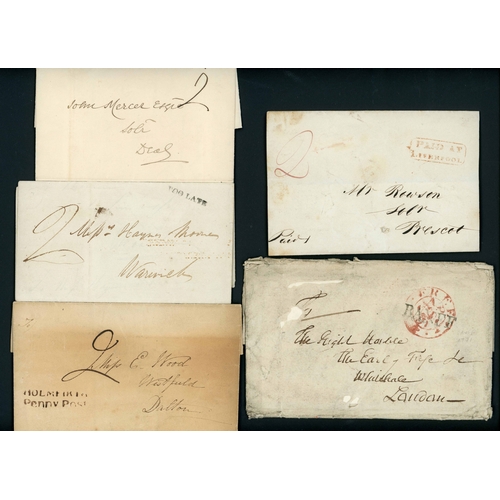 John Mercer Esqre 2
Solr
Deal
TOO LATE
2 Messrs Haynes
Warwick
2 Miss E. Wood
Westfield
Dalton
HOLMFIRTH
Penny Post
2
PAID AT
LIVERPOOL
Mr Rowson
Solr
Prescot
Paid
FREE
The Right Honble
The Earl
Whitehall
London